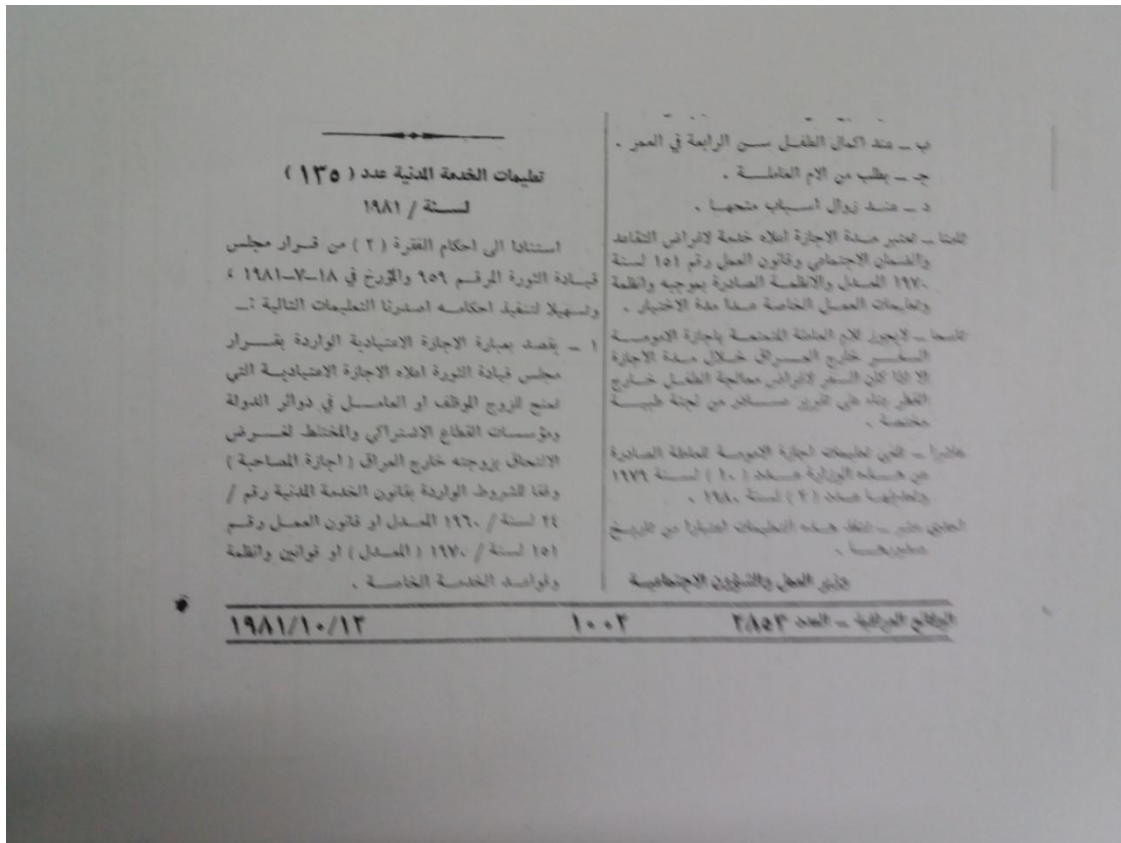 ب ـ عند اكمال الطفل سن الرابعة في العمر .
جـ ـ بطلب من الام العاملة .
د ـ عند زوال اسباب منحها .
ثامنا ـ تعتبر مدة الاجازة اعلاه خدمة لاغراض التقاعد
والضمان الاجتماعي وقانون العمل رقم ١٥١ لسنة
١٩٧٠ المعدل والانظمة الصادرة بموجبه وانظمة
وتعليمات العمل الخاصة عدا مدة الاختبار .
تاسعا ـ لايجوز للام العاملة المتمتعة باجازة الامومة
السفر خارج العراق خلال مدة الاجازة
الا اذا كان السفر لاغراض معالجة الطفل خارج
القطر بناء على تقرير صادر من لجنة طبية
مختصة .
عاشرا ـ تلغى تعليمات اجازة الامومة للعاملة الصادرة
عن هذه الوزارة عدد ( ١٠ ) لسنة ١٩٧٩
وتعديلها عدد ( ٢ ) لسنة ١٩٨٠ .
الحادي عشر ـ تنفذ هذه التعليمات اعتبارا من تاريخ
وزير العمل والشؤون الاجتماعية
تعليمات الخدمة المدنية عدد ( ١٣٥ )
لسنة / ١٩٨١
استنادا الى احكام الفقرة ( ٢ ) من قرار مجلس
قيادة الثورة المرقم ٩٥٩ والمؤرخ في ١٨ـ٧ـ١٩٨١ ،
وتسهيلا لتنفيذ احكامه اصدرنا التعليمات التالية :ـ
١ ـ يقصد بعبارة الاجازة الاعتيادية الواردة بقرار
مجلس قيادة الثورة اعلاه الاجازة الاعتيادية التي
تمنح للزوج الموظف او العامل في دوائر الدولة
ومؤسسات القطاع الاشتراكي والمختلط لغرض
الالتحاق بزوجته خارج العراق ( اجازة المصاحبة )
وفقا للشروط الواردة بقانون الخدمة المدنية رقم /
٢٤ لسنة / ١٩٦٠ المعدل او قانون العمل رقم
١٥١ لسنة / ١٩٧٠ ( المعدل ) او قوانين وانظمة
وقواعد الخدمة الخاصة .
الوقائع العراقية ـ العدد ٢٨٥٣ ١٠٠٢ ١٩٨١/١٠/١٢